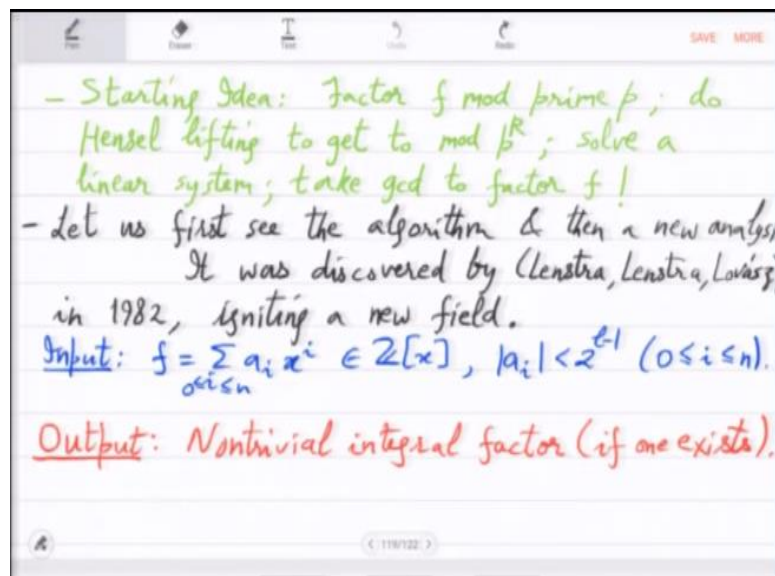 Pen Eraser Text Undo Redo SAVE MORE
- Starting Idea: Factor f mod prime p; do
Hensel lifting to get to mod p^k; solve a
linear system; take gcd to factor f!
- Let us first see the algorithm & then a new analys
It was discovered by (Lenstra, Lenstra, Lovász
in 1982, igniting a new field.
Input: f = ∑_{0≤i≤n} a_i x^i ∈ ℤ[x], |a_i| < 2^{l-1} (0≤i≤n).
Output: Nontrivial integral factor (if one exists).
< 119/122 >